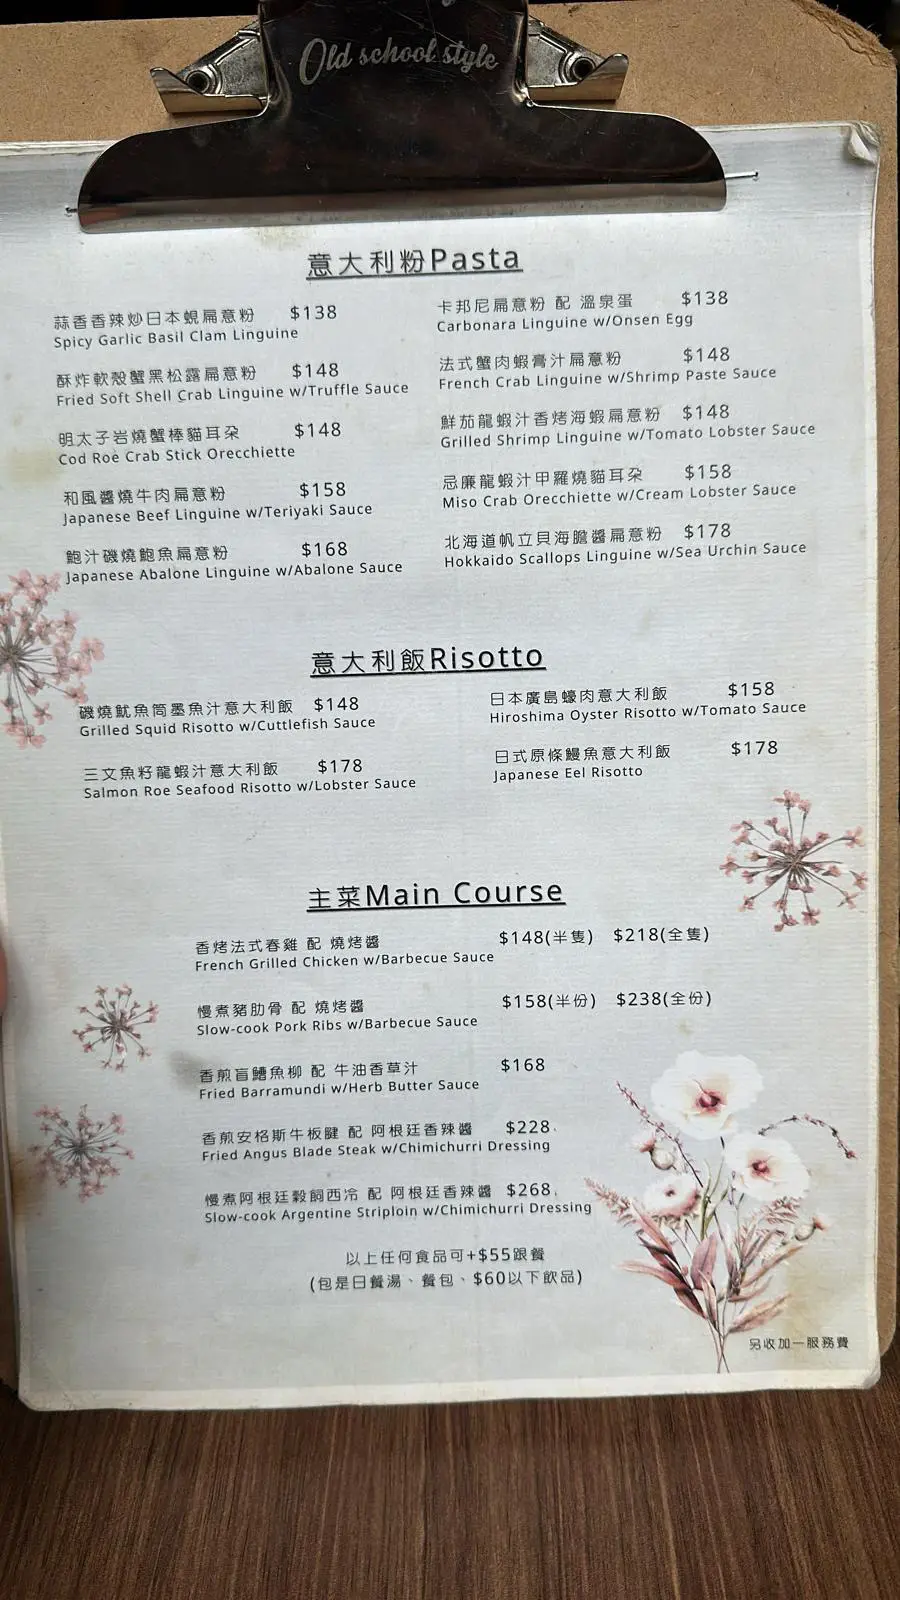 Old school style
意大利粉Pasta
蒜香香辣炒日本蜆扁意粉 $138
Spicy Garlic Basil Clam Linguine
酥炸軟殼蟹黑松露扁意粉 $148
Fried Soft Shell Crab Linguine w/Truffle Sauce
明太子岩燒蟹棒貓耳朵 $148
Cod Roe Crab Stick Orecchiette
和風醬燒牛肉扁意粉 $158
Japanese Beef Linguine w/Teriyaki Sauce
鮑汁磯燒鮑魚扁意粉 $168
Japanese Abalone Linguine w/Abalone Sauce
卡邦尼扁意粉 配 溫泉蛋 $138
Carbonara Linguine w/Onsen Egg
法式蟹肉蝦膏汁扁意粉 $148
French Crab Linguine w/Shrimp Paste Sauce
鮮茄龍蝦汁香烤海蝦扁意粉 $148
Grilled Shrimp Linguine w/Tomato Lobster Sauce
忌廉龍蝦汁甲羅燒貓耳朵 $158
Miso Crab Orecchiette w/Cream Lobster Sauce
北海道帆立貝海膽醬扁意粉 $178
Hokkaido Scallops Linguine w/Sea Urchin Sauce
意大利飯Risotto
磯燒魷魚筒墨魚汁意大利飯 $148
Grilled Squid Risotto w/Cuttlefish Sauce
三文魚籽龍蝦汁意大利飯 $178
Salmon Roe Seafood Risotto w/Lobster Sauce
日本廣島蠔肉意大利飯 $158
Hiroshima Oyster Risotto w/Tomato Sauce
日式原條鰻魚意大利飯 $178
Japanese Eel Risotto
主菜Main Course
香烤法式春雞 配 燒烤醬 $148(半隻) $218(全隻)
French Grilled Chicken w/Barbecue Sauce
慢煮豬肋骨 配 燒烤醬 $158(半份) $238(全份)
Slow-cook Pork Ribs w/Barbecue Sauce
香煎盲鰽魚柳 配 牛油香草汁 $168
Fried Barramundi w/Herb Butter Sauce
香煎安格斯牛板腱 配 阿根廷香辣醬 $228
Fried Angus Blade Steak w/Chimichurri Dressing
慢煮阿根廷穀飼西冷 配 阿根廷香辣醬 $268
Slow-cook Argentine Striploin w/Chimichurri Dressing
以上任何食品可+$55跟餐
(包是日餐湯、餐包、$60以下飲品)
另收加一服務費